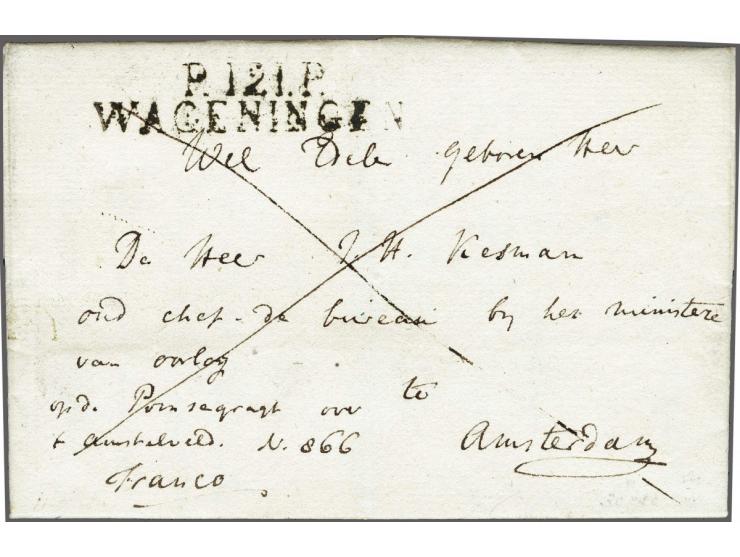 P.121.P.
WAGENINGEN
Wel Edele geboren Heer
De Heer J. H. Kesman
oud chef-de bureau by het ministere
van oorlog
op de Prinsegragt over
t amstelveld. N. 866
te
Amsterdam
Franco.